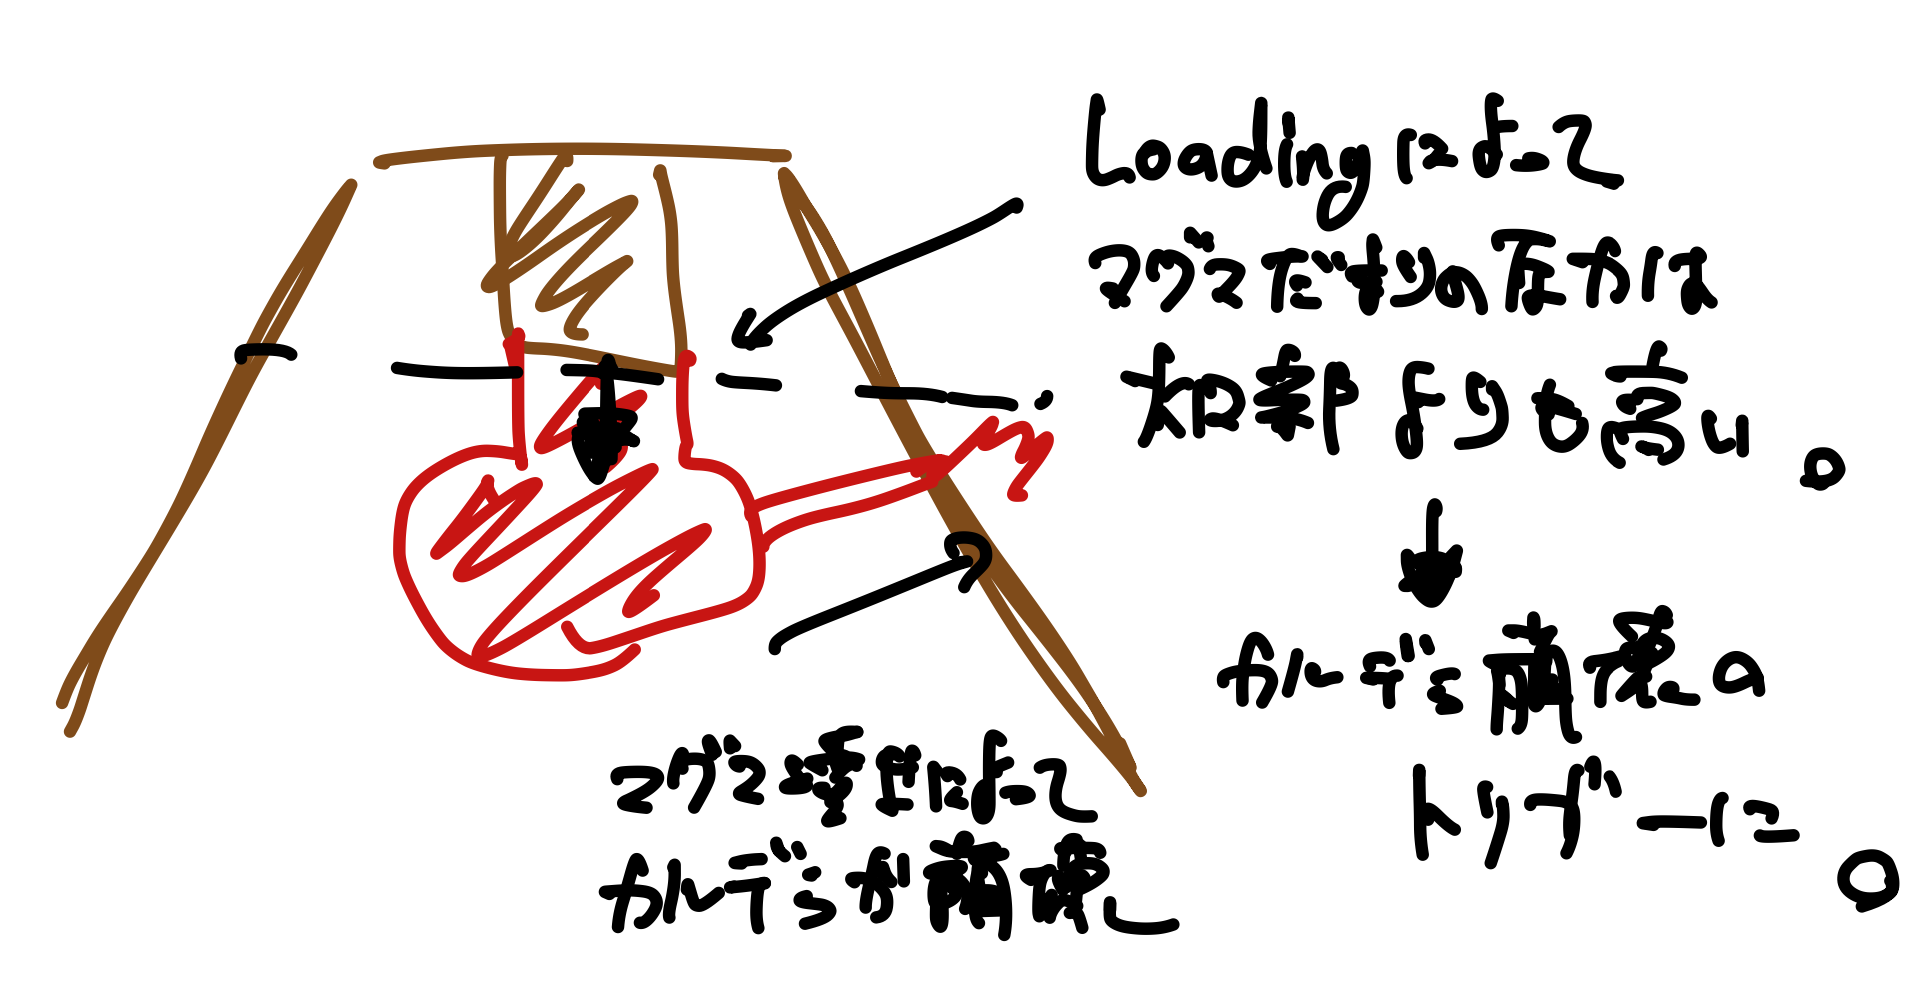 Loadingによって
マグマだまりの圧力は
火口部よりも高い。
カルデラ崩壊の
トリガーに。
マグマによって
カルデラが崩壊し